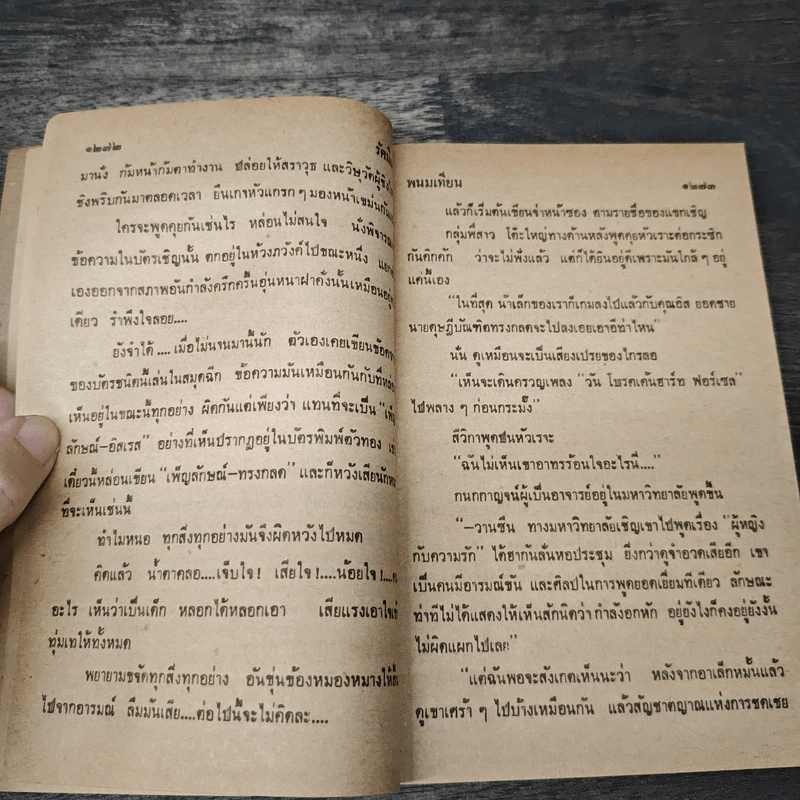 ๑๒๗๒
มานั่ง ก้มหน้าก้มตาทำงาน ปล่อยให้สราวุธ และวิษุวัต
ซึ่งพริบกันมาตลอดเวลา ยืนเกาหัวแกรก ๆ มองหน้าเขม่นกัน
ใครจะพูดคุยกันเช่นไร หล่อนไม่สนใจ นั่งพิจารณ
ข้อความในบัตรเชิญนั้น ตกอยู่ในห้วงภวังค์ไปขณะหนึ่ง
เองออกจากสภาพอันกำลังครึกครื้นอุ่นหนาฝาคั่งนั้นเหมือนอยู่
เดียว รำพึงใจลอย....
ยังจำได้ .... เมื่อไม่นานมานี้นัก ตัวเองเคยเขียนข้อ
ของบัตรชนิดนี้เล่นในสมุดฉีก ข้อความมันเหมือนกันกับที่
เห็นอยู่ในขณะนี้ทุกอย่าง ผิดกันแต่เพียงว่า แทนที่จะเป็น
ลักษณ์–อิสเรส” อย่างที่เห็นปรากฏอยู่ในบัตรพิมพ์ตัวทอง
เดี๋ยวนี้หล่อนเขียน “เพ็ญลักษณ์–ทรงกลด” และก็หวังเสียนัก
ที่จะเห็นเช่นนี้
ทำไมหนอ ทุกสิ่งทุกอย่างมันจึงผิดหวังไปหมด
คิดแล้ว น้ำตาคลอ....เจ็บใจ ! เสียใจ !....น้อยใจ !....
อะไร เห็นว่าเป็นเด็ก หลอกได้หลอกเอา เสียแรงเอาใจ
ทุ่มเทให้ทั้งหมด
พยายามขจัดทุกสิ่งทุกอย่าง อันขุ่นข้องหมองหมางให้
ไปจากอารมณ์ ลืมมันเสีย....ต่อไปนี้จะไม่คิดละ....
พนมเทียน
๑๒๗๓
แล้วก็เริ่มต้นเขียนจ่าหน้าซอง ตามรายชื่อของแขกเชิญ
กลุ่มพี่สาว โต๊ะใหญ่ทางด้านหลังพูดคุยหัวเราะต่อกระซิก
กันคิกคัก ว่าจะไม่ฟังแล้ว แต่ก็ได้ยินอยู่ดีเพราะมันใกล้ ๆ อยู่
แค่นี้เอง
“ในที่สุด น้าเล็กของเราก็เกมลงไปแล้วกับคุณอิส ยอดชาย
นายดุษฎีบัณฑิตทรงกลดจะไปลงเอยเอาอีท่าไหน”
นั่น ดูเหมือนจะเป็นเสียงเปรยของไกรลอ
“เห็นจะเดินครวญเพลง “วัน โบรคเค้นฮาร์ท ฟอร์เซล”
ไปพลาง ๆ ก่อนกระมั้ง”
สีวิกาพูดปนหัวเราะ
“ฉันไม่เห็นเขาอาทรร้อนใจอะไรนี่....”
กนกกาญจน์ผู้เป็นอาจารย์อยู่ในมหาวิทยาลัยพูดขึ้น
“–วานซืน ทางมหาวิทยาลัยเชิญเขาไปพูดเรื่อง “ผู้หญิง
กับความรัก” ได้ฮากันลั่นหอประชุม ยิ่งกว่าดูจำอวดเสียอีก เขา
เป็นคนมีอารมณ์ขัน และศิลปในการพูดยอดเยี่ยมทีเดียว ลักษณะ
ท่าทีไม่ได้แสดงให้เห็นสักนิดว่า กำลังอกหัก อยู่ยังไงก็คงอยู่ยังงั้น
ไม่ผิดแผกไปเลย”
“แต่ฉันพอจะสังเกตเห็นนะว่า หลังจากอาเล็กหมั้นแล้ว
ดูเขาเศร้า ๆ ไปบ้างเหมือนกัน แล้วสัญชาตญาณแห่งการชดเชย